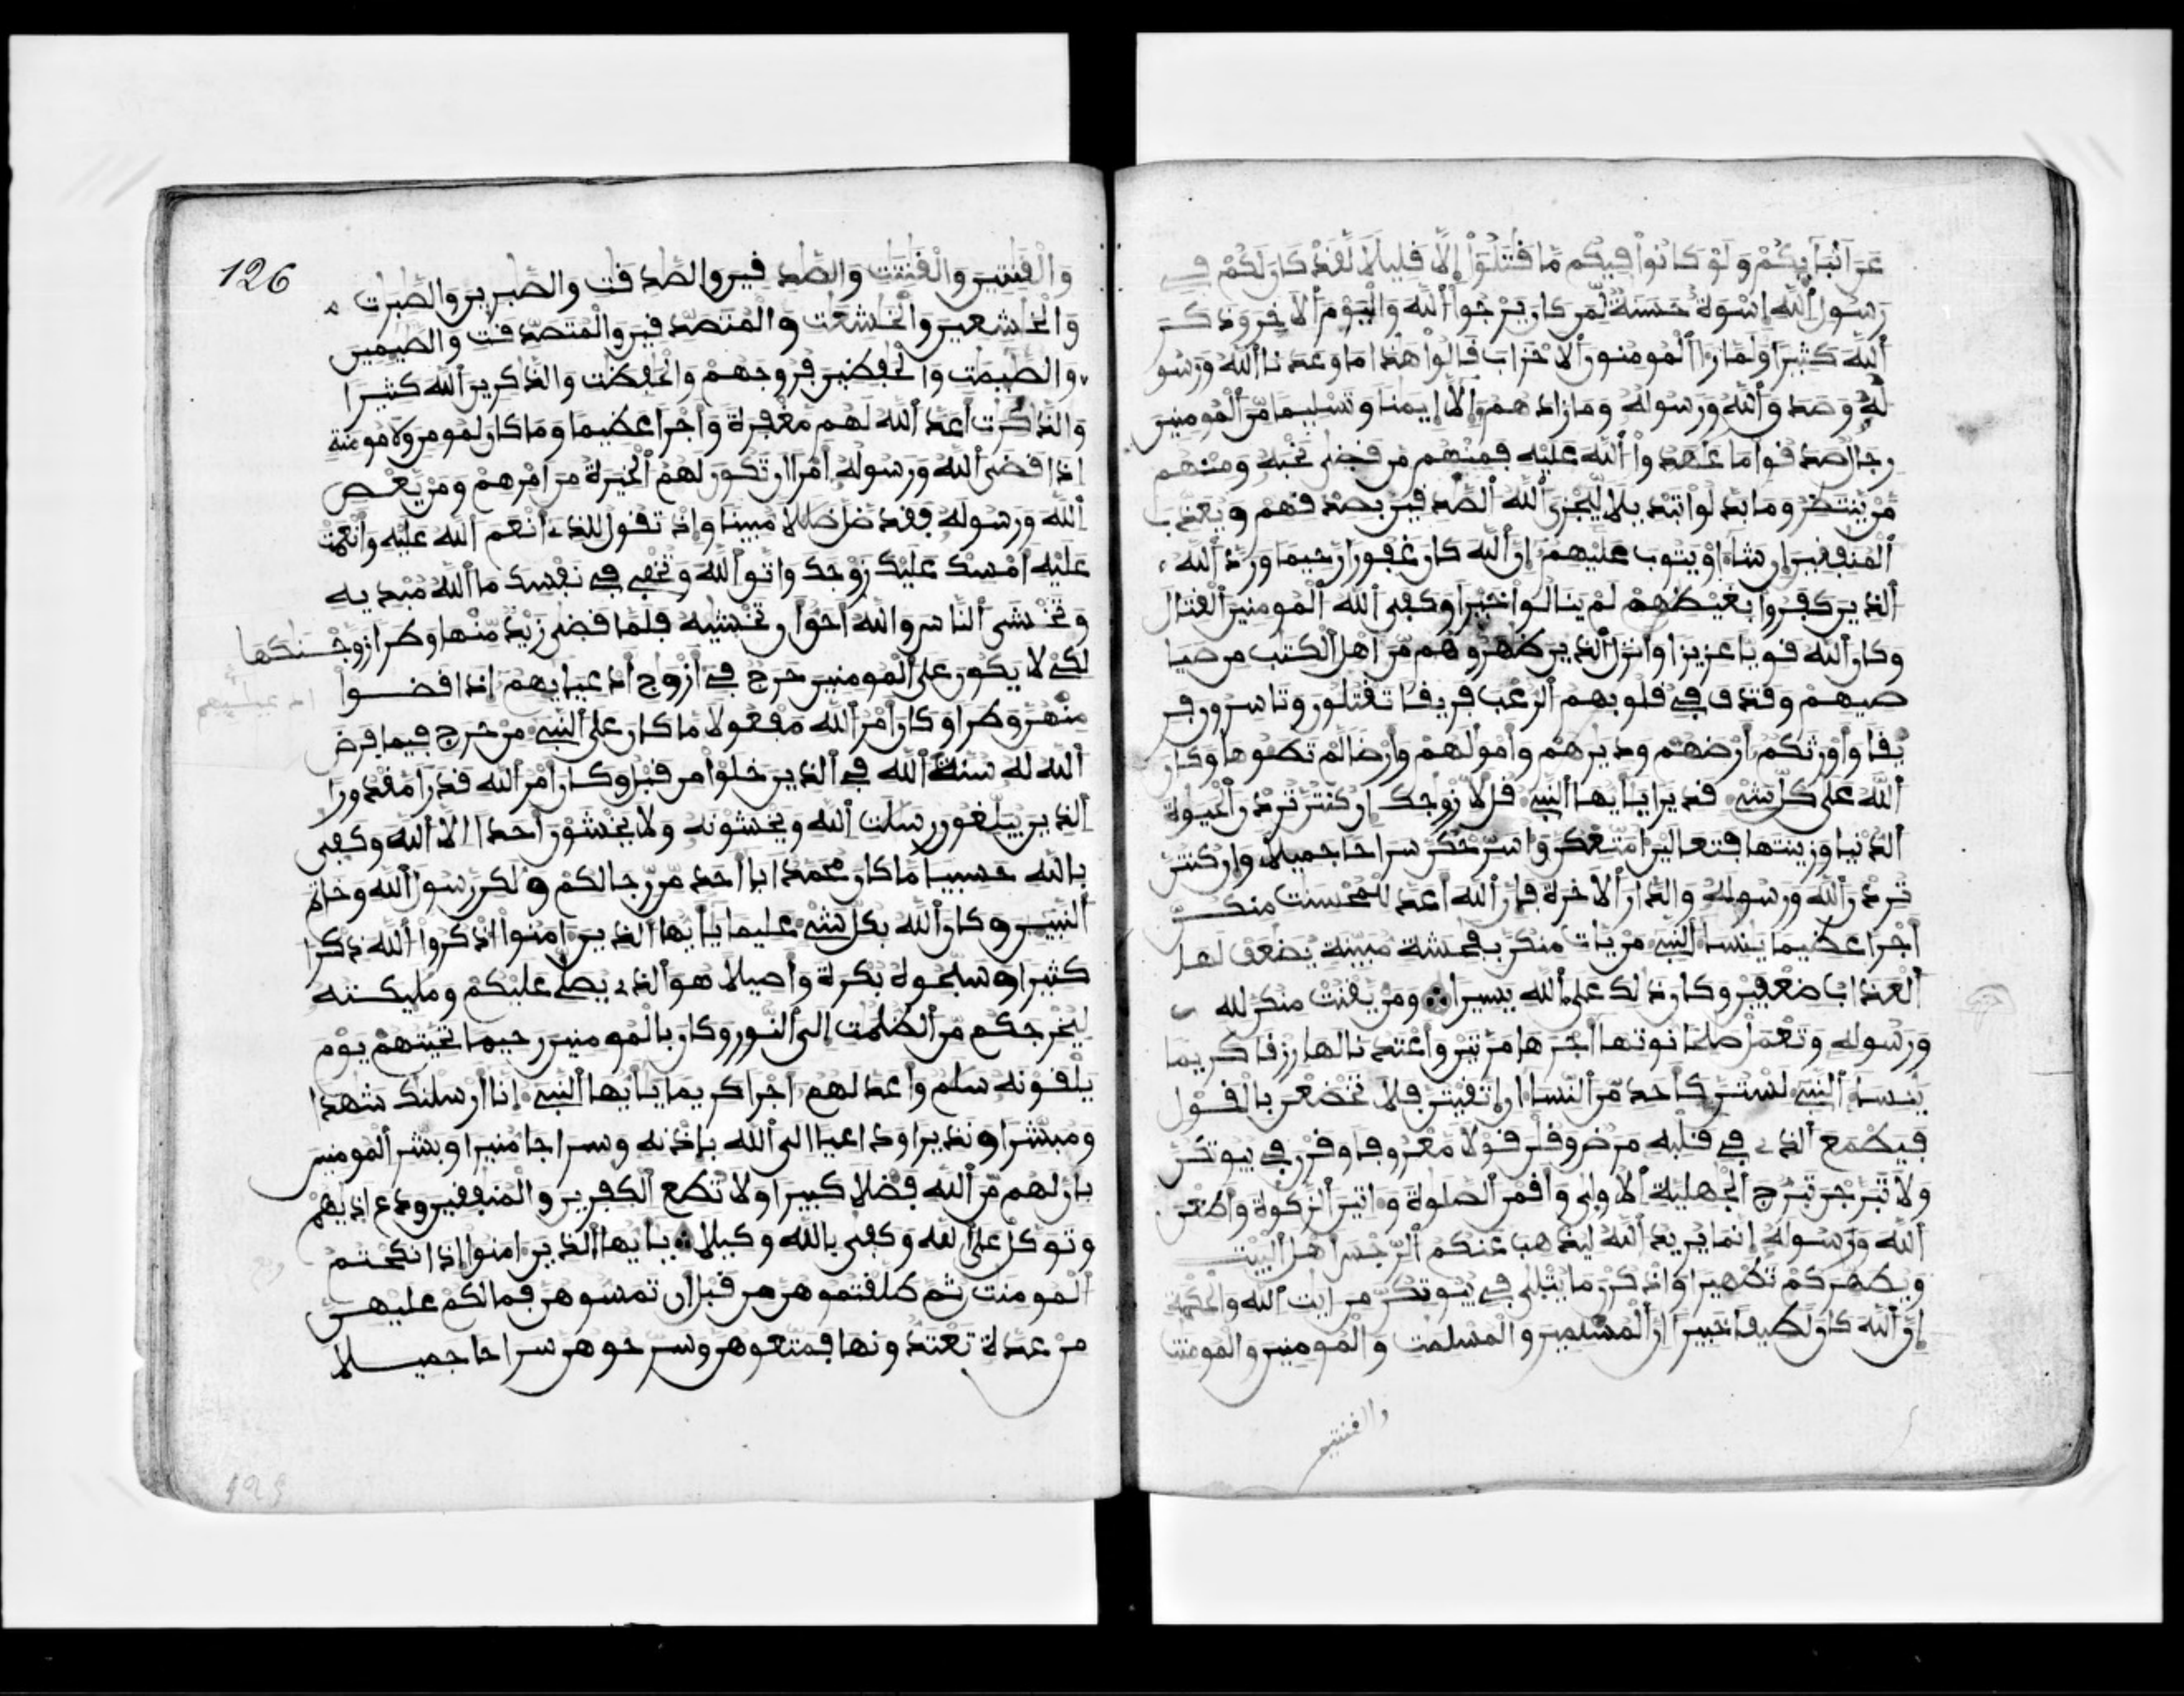 عن انبايكم ولو كانوا فيكم ما قتلوا إلا قليلا لقد كان لكم في
رسول الله إسوة حسنة لمن كان يرجوا الله واليوم الاخر وذكر
الله كثيرا ولما را المومنون الاحزاب قالوا هذا ما وعدنا الله ورسو
له وصدق الله ورسوله وما زادهم إلا إيمنا وتسليما من المومنين
رجال صدقوا ما عهدوا الله عليه فمنهم من قضى نحبه ومنهم
من ينتظر وما بدلوا تبديلا ليجزي الله الصدقين بصدقهم ويعذب
المنفقين إن شا او يتوب عليهم إن الله كان غفورا رحيما ورد الله
الذين كفروا بغيظهم لم ينالوا خيرا وكفى الله المومنين القتال
وكان الله قويا عزيزا وانزل الذين ظهروهم من اهل الكتب من صيا
صيهم وقذف في قلوبهم الرعب فريقا تقتلون وتاسرون فر
يقا واورثكم ارضهم وديرهم واموالهم وارضا لم تطوها وكان
الله على كل شي قديرا يايها النبي قل لازوجك إن كنتن تردن الحيوة
الدنيا وزينتها فتعالين امتعكن واسرحكن سراحا جميلا وإن كنتن
تردن الله ورسوله والدار الاخرة فإن الله اعد للمحسنت منكن
اجرا عظيما ينسا النبي من يات منكن بفحشة مبينة يضعف لها
العذاب ضعفين وكان ذلك على الله يسيرا ومن يقنت منكن لله
ورسوله وتعمل صلحا نوتها اجرها مرتين واعتدنا لها رزقا كريما
ينسا النبي لستن كاحد من النسا إن اتقيتن فلا تخضعن بالقول
فيطمع الذي في قلبه مرض وقلن قولا معروفا وقرن في بيوتكن
ولا تبرجن تبرج الجهلية الاولى واقمن الصلوة واتين الزكوة واطعن
الله ورسوله إنما يريد الله ليذهب عنكم الرجس اهل البيت
ويطهركم تطهيرا واذكرن ما يتلى في بيوتكن من ايت الله والحكمة
إن الله كان لطيفا خبيرا إن المسلمين والمسلمت والمومنين والمومنت
والقنتين
126
والقنتين والقنتت والصدقين والصدقت والصبرين والصبرت
والخشعين والخشعت والمتصدقين والمتصدقت والصيمين
والصيمت والحفظين فروجهم والحفظت والذكرين الله كثيرا
والذكرت اعد الله لهم مغفرة واجرا عظيما وما كان لمومن ولا مومنة
إذا قضى الله ورسوله امرا ان تكون لهم الخيرة من امرهم ومن يعص
الله ورسوله فقد ضل ضللا مبينا وإذ تقول للذي انعم الله عليه وانعمت
عليه امسك عليك زوجك واتق الله وتخفي في نفسك ما الله مبديه
وتخشى الناس والله احق ان تخشيه فلما قضى زيد منها وطرا زوجنكها
لكي لا يكون على المومنين حرج في ازواج ادعيايهم إذا قضوا
ادعيايهم
منهن وطرا وكان امر الله مفعولا ما كان على النبي من حرج فيما فرض
الله له سنة الله في الذين خلوا من قبل وكان امر الله قدرا مقدورا
الذين يبلغون رسلت الله ويخشونه ولا يخشون احدا إلا الله وكفى
بالله حسيبا ما كان محمد ابا احد من رجالكم ولكن رسول الله وخاتم
النبيين وكان الله بكل شي عليما يايها الذين امنوا اذكروا الله ذكرا
كثيرا وسبحوه بكرة واصيلا هو الذي يصلي عليكم ومليكته
ليخرجكم من الظلمت إلى النور وكان بالمومنين رحيما تحيتهم يوم
يلقونه سلم واعد لهم اجرا كريما يايها النبي إنا ارسلنك شهدا
ومبشرا ونذيرا وداعيا إلى الله بإذنه وسراجا منيرا وبشر المومنين
بان لهم من الله فضلا كبيرا ولا تطع الكفرين والمنفقين ودع اذيهم
وتوكل على الله وكفى بالله وكيلا يايها الذين امنوا إذا نكحتم
المومنت ثم طلقتموهن من قبل ان تمسوهن فما لكم عليهن
من عدة تعتدونها فمتعوهن وسرحوهن سراحا جميلا